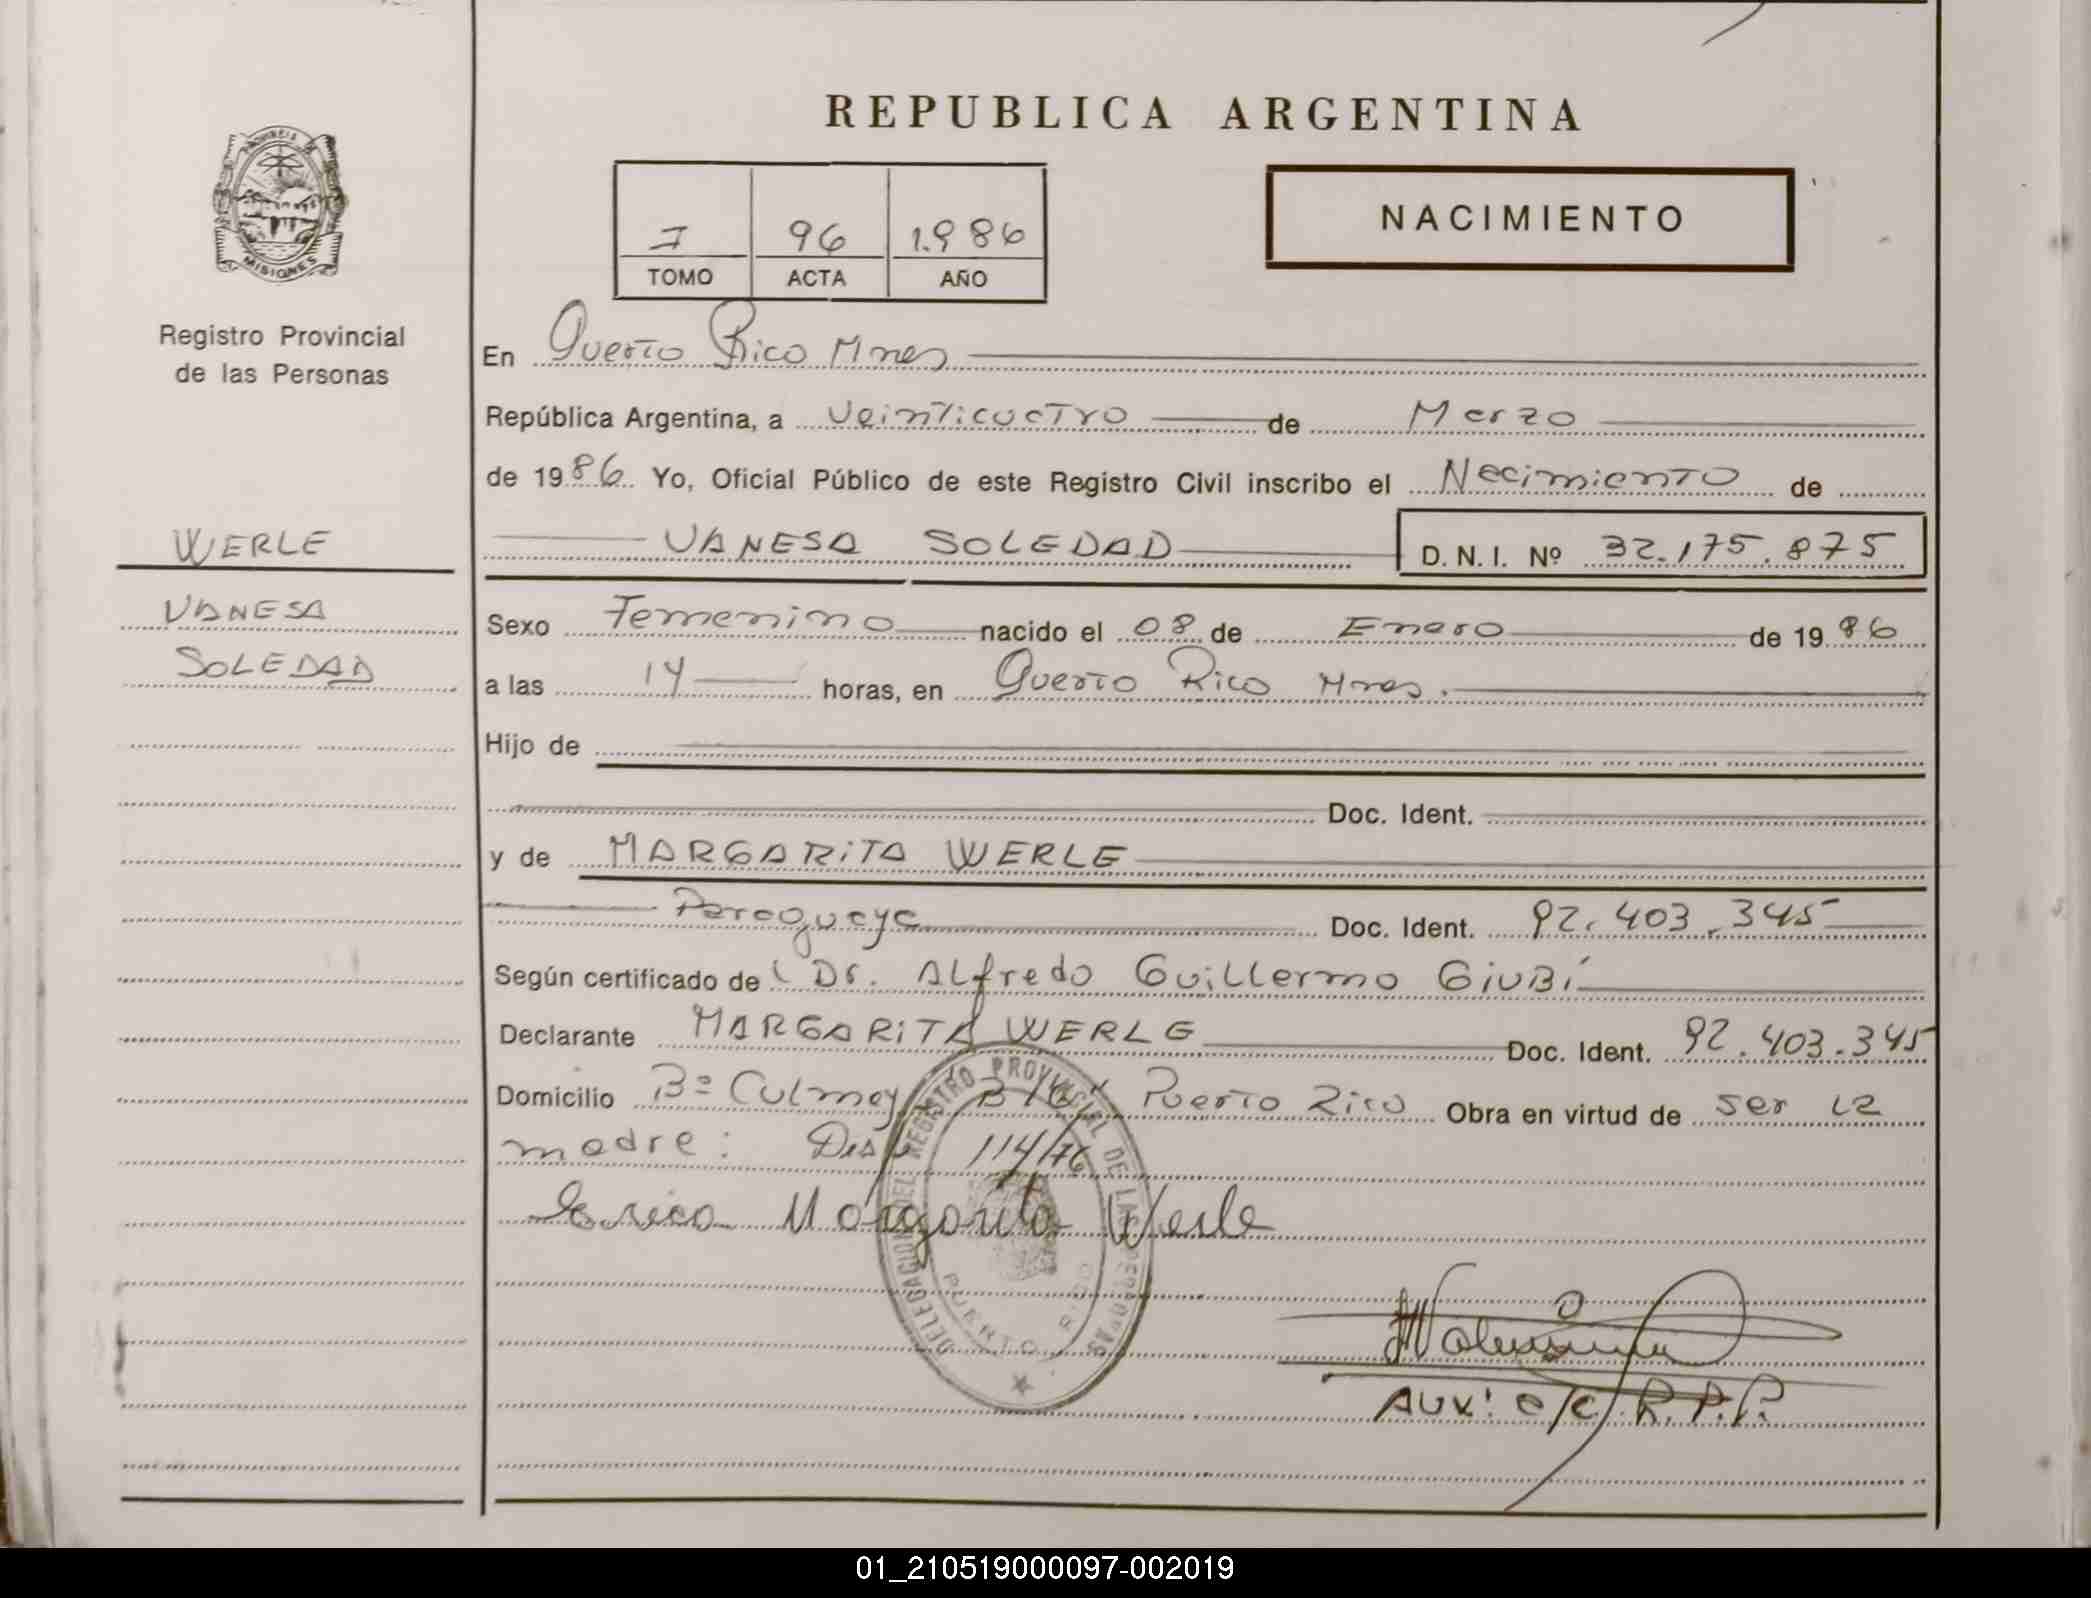 REPUBLICA ARGENTINA
PROVINCIA DE
MISIONES
Registro Provincial
de las Personas
I 96 1.986
TOMO ACTA AÑO
NACIMIENTO
En Puerto Rico Mnes
República Argentina, a veinticuatro de Marzo
de 1986 Yo, Oficial Público de este Registro Civil inscribo el Nacimiento de
WERLE
VANESA SOLEDAD D. N. I. Nº 32.175.875
VANESA
SOLEDAD
Sexo Femenino nacido el 08 de Enero de 1986
a las 14 horas, en Puerto Rico Mnes.
Hijo de
Doc. Ident.
y de MARGARITA WERLE
Paraguaya Doc. Ident. 92.403.345
Según certificado de Dr. Alfredo Guillermo GIUBI
Declarante MARGARITA WERLE Doc. Ident. 92.403.345
Domicilio Bº Culmey Puerto Rico Obra en virtud de ser la
madre: Disp. 114/76
Erica Margarita Werle
DELEGACION DEL REGISTRO PROVINCIAL DE LAS PERSONAS
PUERTO RICO
AUX: e/c R.P.P.
01_210519000097-002019